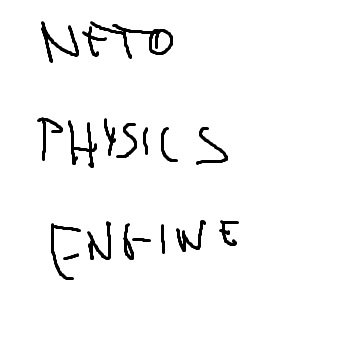 NETO
PHYSICS
ENGINE